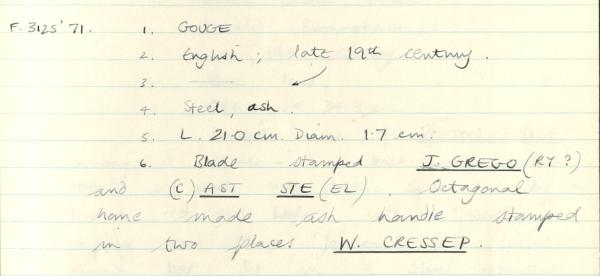 F.3125'71. 1. GOUGE
2. English ; late 19th century.
3. ——
4. Steel, ash.
5. L. 21.0 cm. Diam. 1.7 cm.
6. Blade stamped J. GREGO (RY ?)
and (C) AST STE (EL). Octagonal
home made ash handle stamped
in two places W. CRESSEP.